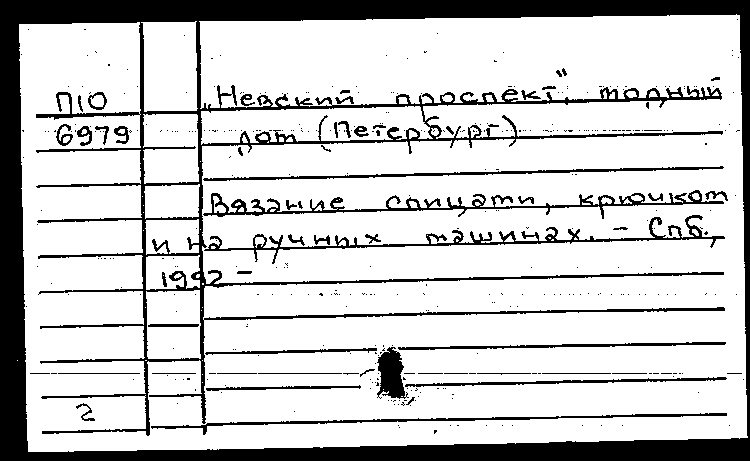 П10
6979
„Невский проспект", модный
дом (Петербург)
Вязание спицами, крючком
и на ручных машинах. – Спб.,
1992 –
2